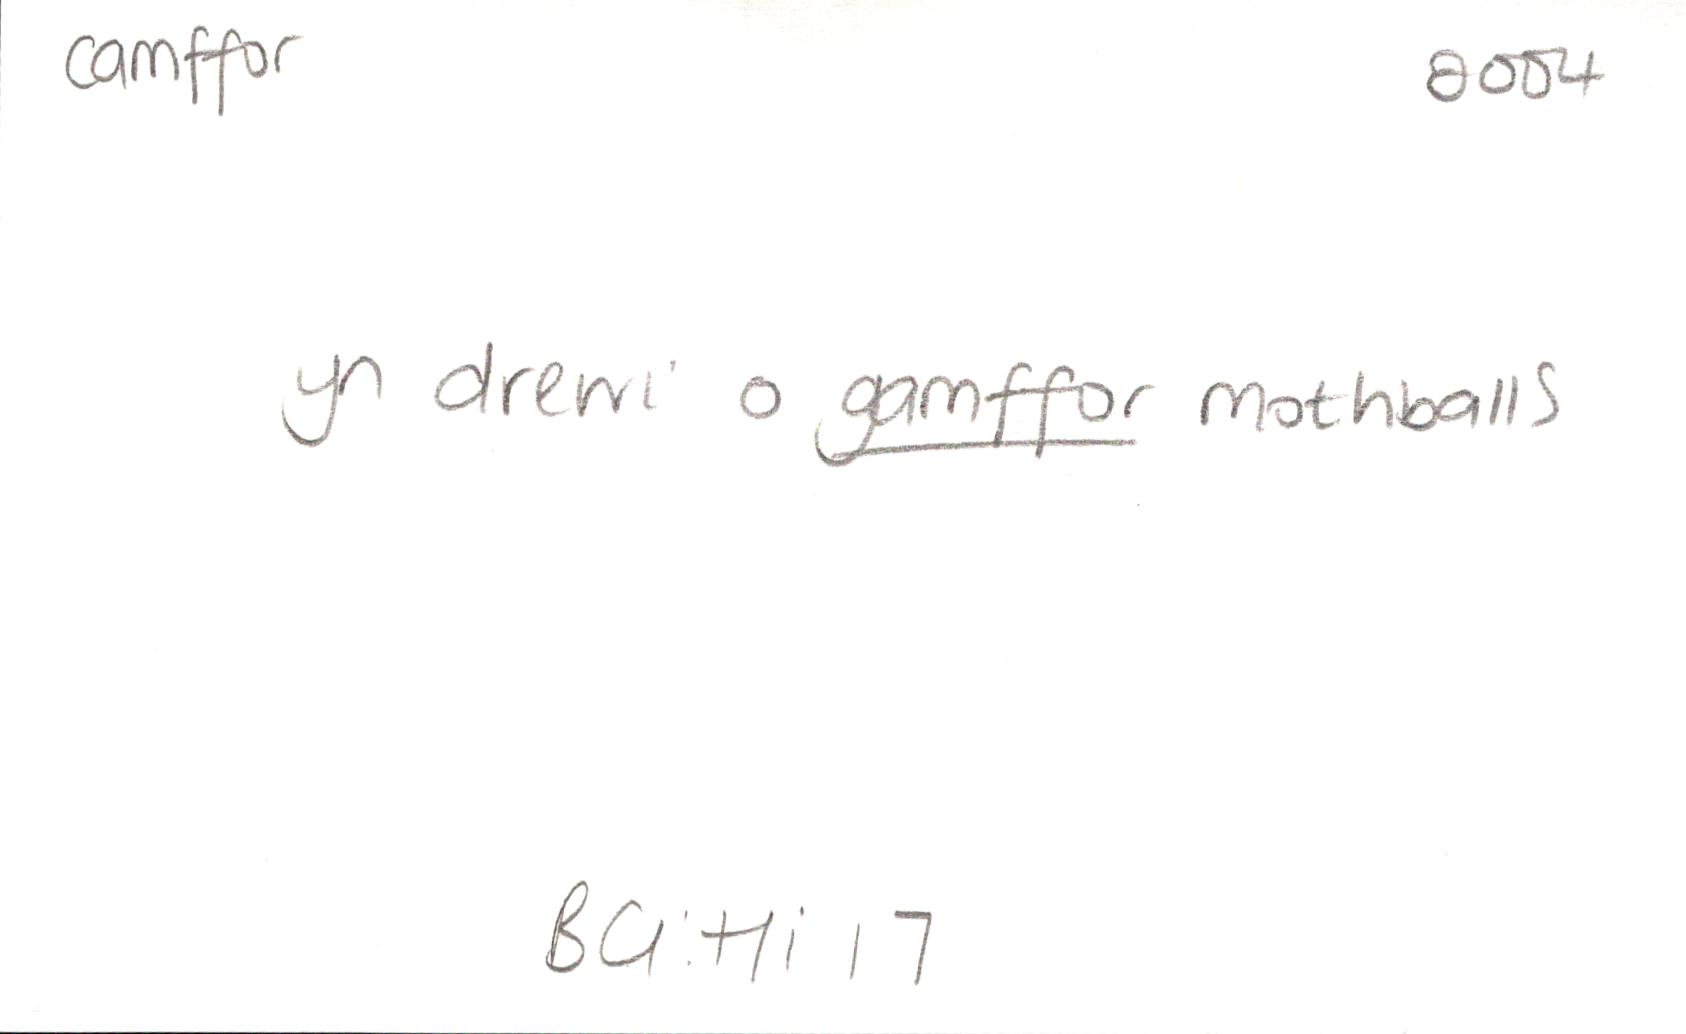 camffor 2004
yn drewi o gamffor mothballs
BG: Hi 17